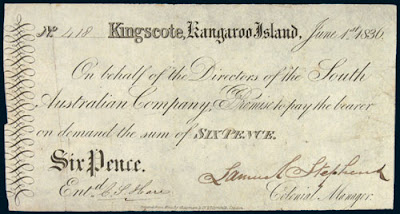 No. 418 Kingscote, Kangaroo Island. June 1st 1836.
On behalf of the Directors of the South
Australian Company, I Promise to pay the bearer
on demand the sum of SIXPENCE.
Six Pence.
Samuel Stephens
Entd. C S Hare
Colonial Manager.